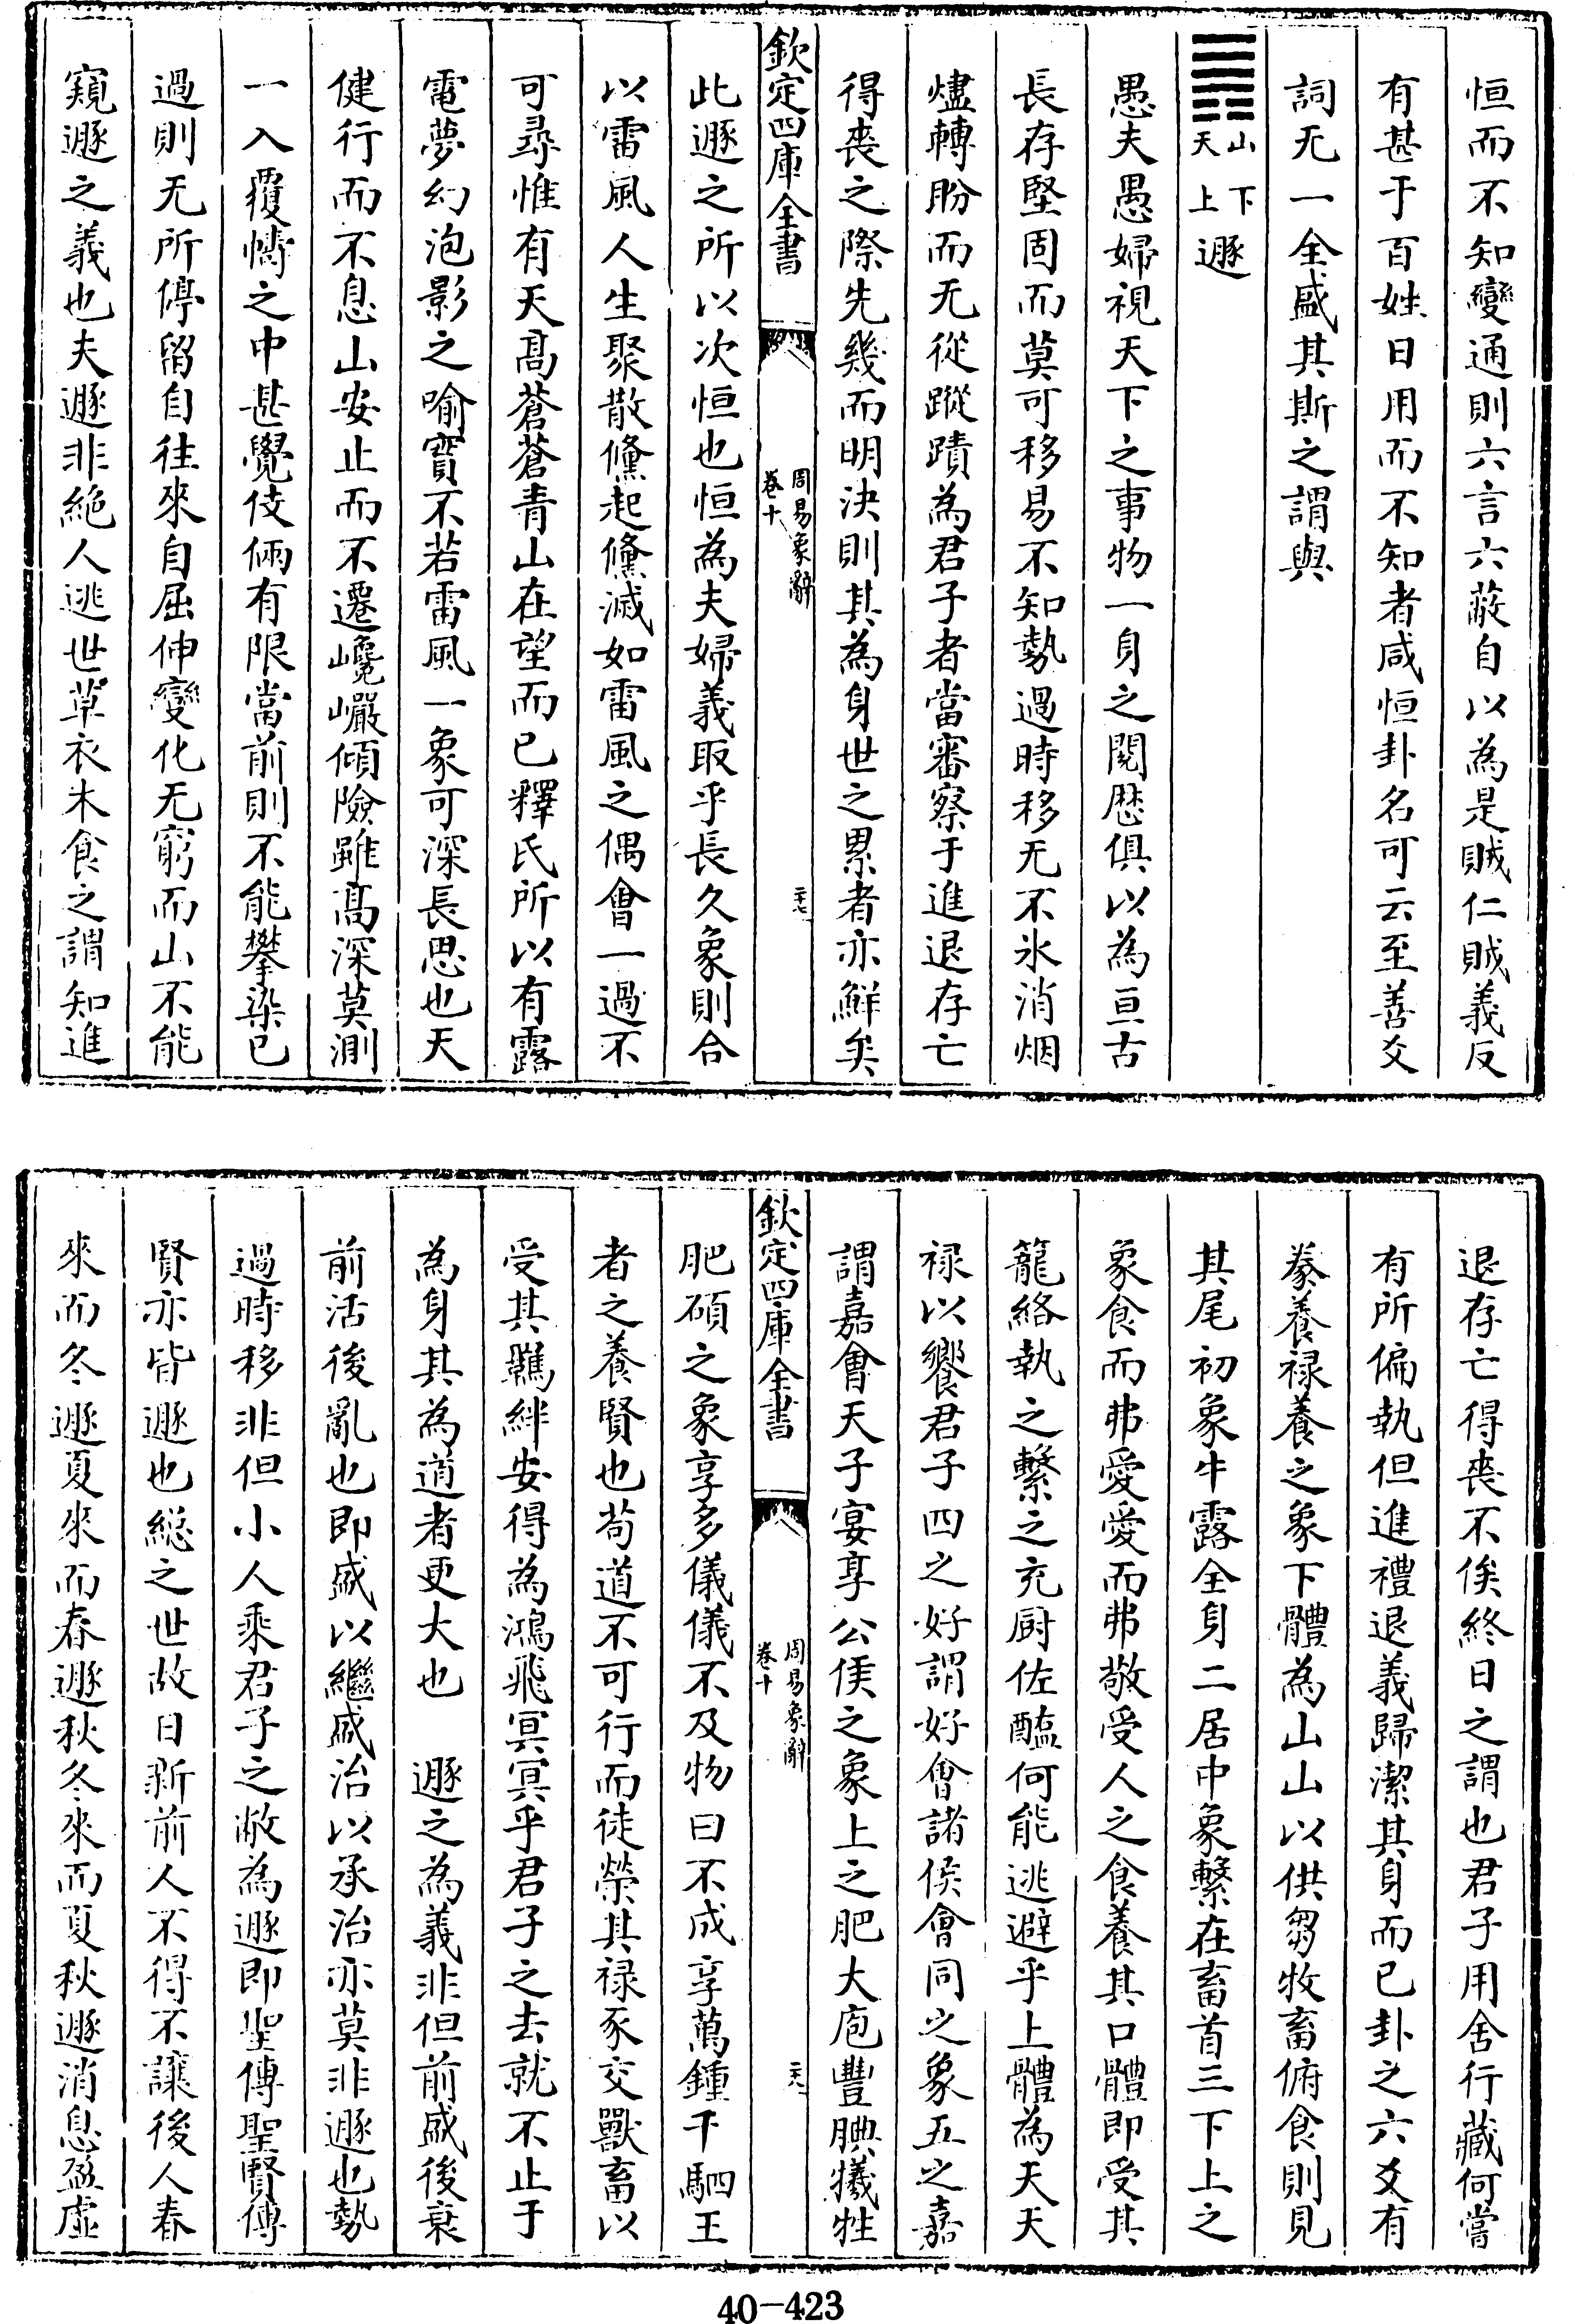 恒而不知變通則六言六蔽自以為是賊仁賊義反
有甚于百姓日用而不知者咸恒卦名可云至善爻
詞无一全盛其斯之謂與
䷠山下天上遯
愚夫愚婦視天下之事物一身之閱歴俱以為亘古
長存堅固而莫可移易不知勢過時移无不氷消烟
燼轉盼而无從蹤蹟為君子者當審察于進退存亡
得喪之際先幾而明決則其為身世之累者亦鮮矣
欽定四庫全書
周易象辭
卷十
二十七
此遯之所以次恒也恒為夫婦義取乎長久象則合
以雷風人生聚散儵起儵滅如雷風之偶會一過不
可尋惟有天髙蒼蒼青山在望而已釋氏所以有露
電夢幻泡影之喻寳不若雷風一象可深長思也天
健行而不息山安止而不遷巉巖傾險雖髙深莫測
一入覆幬之中甚覺伎倆有限當前則不能攀染已
過則无所停留自往來自屈伸變化无窮而山不能
窺遯之義也夫遯非絶人逃世草衣木食之謂知進
退存亡得喪不俟終日之謂也君子用舍行藏何嘗
有所偏執但進禮退義歸潔其身而已卦之六爻有
豢養禄養之象下體為山山以供芻牧畜俯食則見
其尾初象牛露全身二居中象繫在畜首三下上之
象食而弗愛愛而弗敬受人之食養其口體即受其
籠絡執之繫之充厨佐醢何能逃避乎上體為天天
禄以饗君子四之好謂好會諸侯會同之象五之嘉
謂嘉會天子宴享公侯之象上之肥大庖豐腆犧牲
欽定四庫全書
周易象辭
卷十
二十八
肥碩之象享多儀儀不及物曰不成享萬鍾千駟王
者之養賢也苟道不可行而徒榮其禄豕交獸畜以
受其羈絆安得為鴻飛冥冥乎君子之去就不止于
為身其為道者更大也　遯之為義非但前盛後衰
前活後亂也即盛以繼盛治以承治亦莫非遯也勢
過時移非但小人乘君子之敝為遯即聖傳聖賢傳
賢亦皆遯也縂之世故日新前人不得不讓後人春
來而冬遯夏來而春遯秋冬來而夏秋遯消息盈虛
40-423